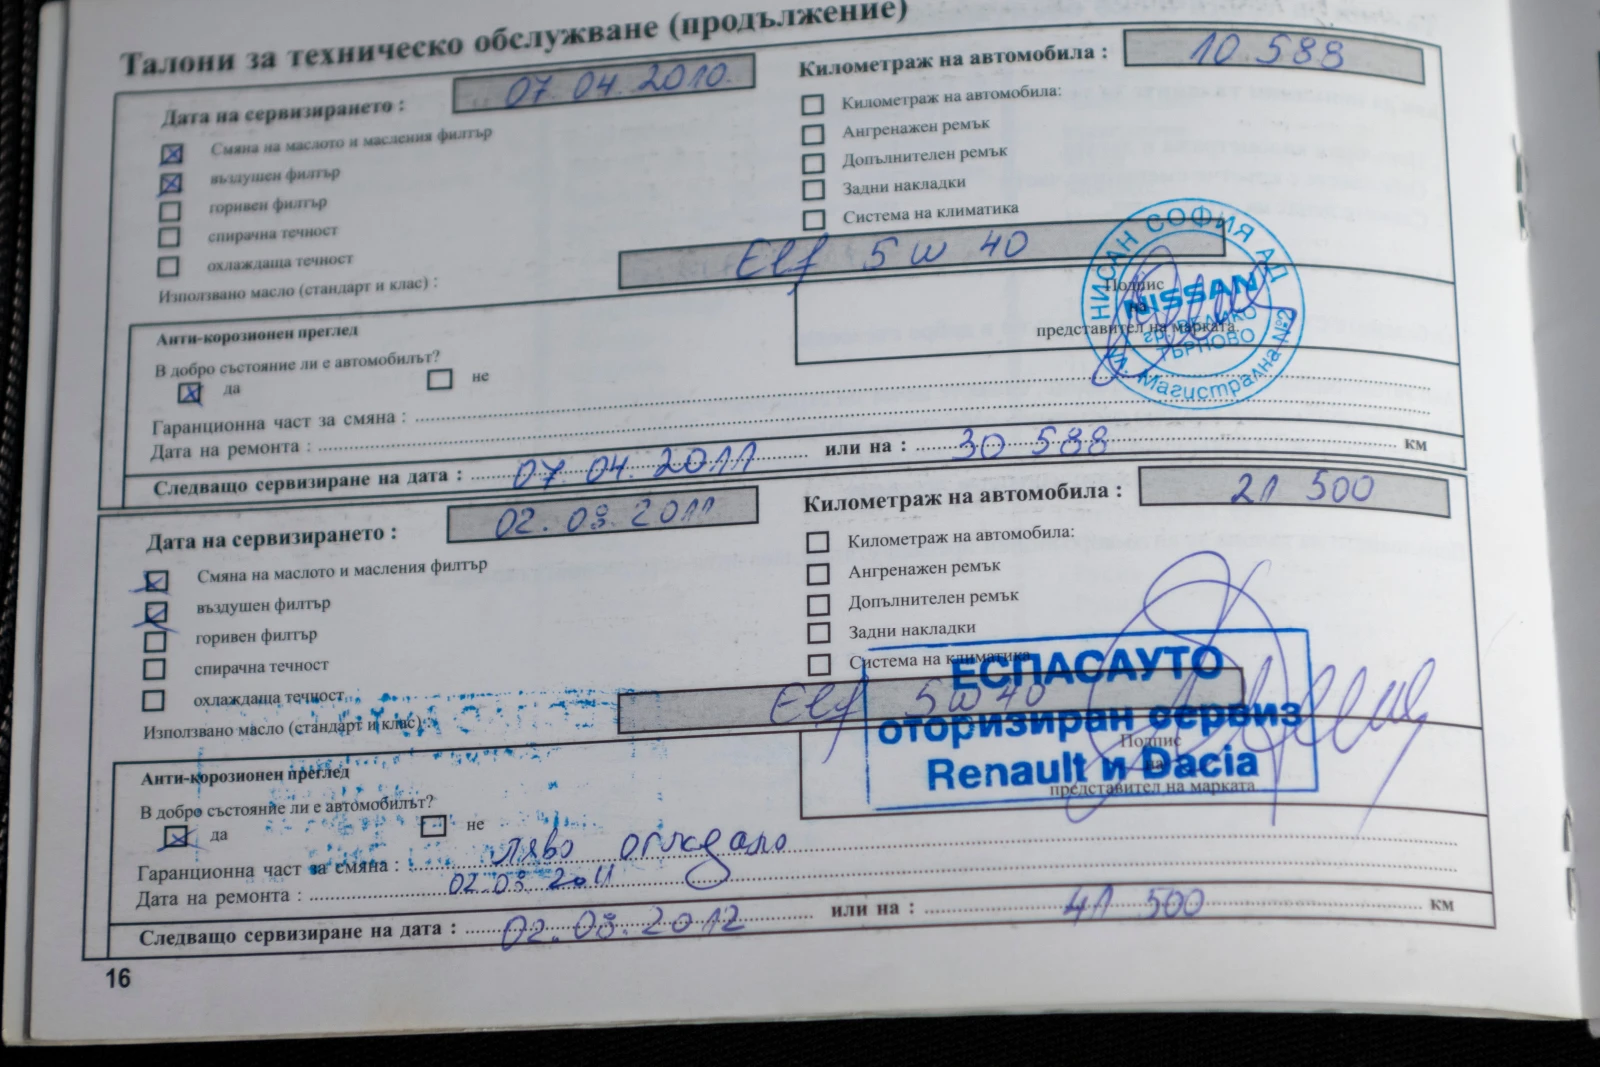 Талони за техническо обслужване (продължение)
Дата на сервизирането : 07.04.2010
Километраж на автомобила : 10 588
Смяна на маслото и масления филтър
въздушен филтър
горивен филтър
спирачна течност
охлаждаща течност
Километраж на автомобила:
Ангренажен ремък
Допълнителен ремък
Задни накладки
Система на климатика
Използвано масло (стандарт и клас) : Elf 5W40
Подпис
на
представител на марката
НИСАН СОФИЯ АД
NISSAN
гр. ВЕЛИКО
ТЪРНОВО
ул. Магистрална №2
Анти-корозионен преглед
В добро състояние ли е автомобилът?
да не
Гаранционна част за смяна :
Дата на ремонта :
Следващо сервизиране на дата : 07.04.2011 или на : 30 588 км
Дата на сервизирането : 02.03.2011
Километраж на автомобила : 21 500
Смяна на маслото и масления филтър
въздушен филтър
горивен филтър
спирачна течност
охлаждаща течност
Километраж на автомобила:
Ангренажен ремък
Допълнителен ремък
Задни накладки
Система на климатика
Използвано масло (стандарт и клас) : Elf 5W40
ЕСПАСАУТО
оторизиран сервиз
Renault и Dacia
Подпис
на
представител на марката
Анти-корозионен преглед
В добро състояние ли е автомобилът?
да не
Гаранционна част за смяна : ляво огледало
Дата на ремонта : 02.03.2011
Следващо сервизиране на дата : 02.03.2012 или на : 41 500 км
16